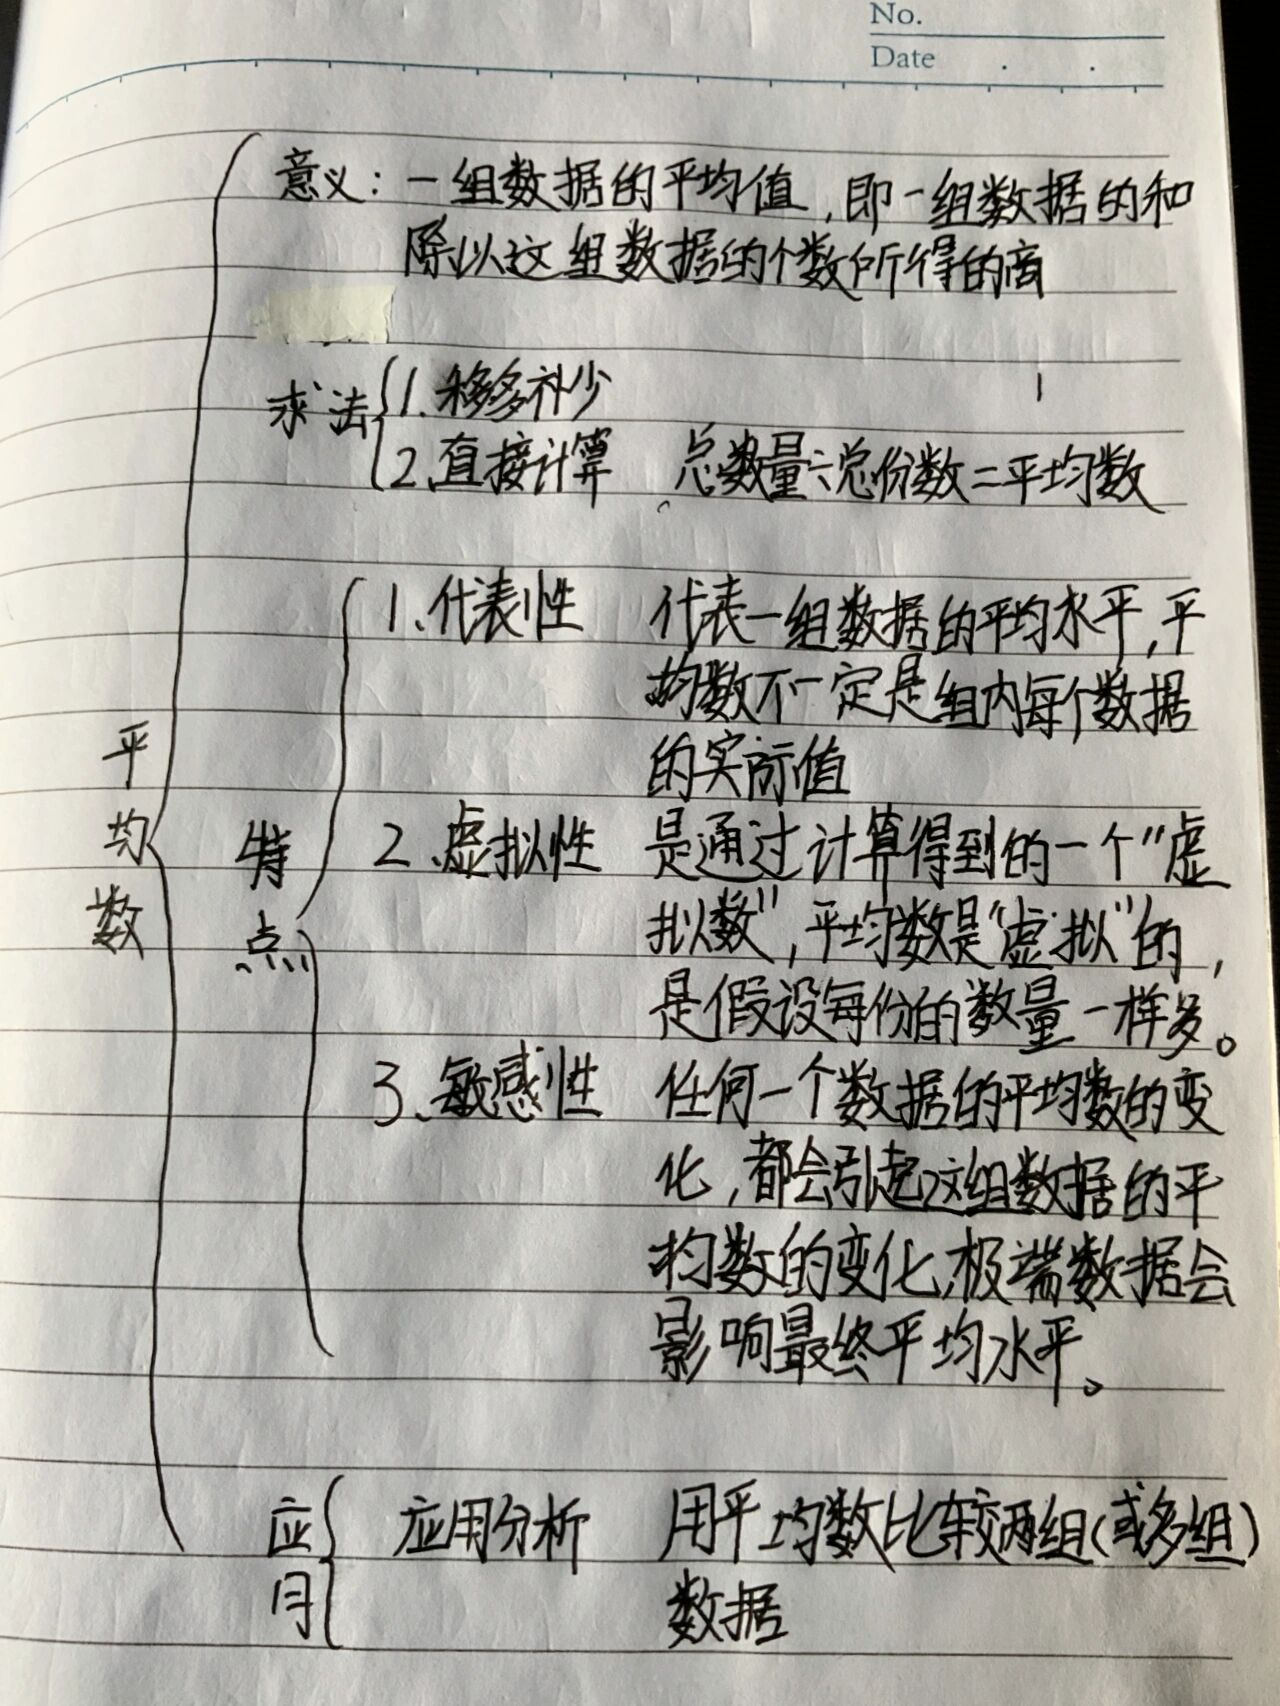 No.
Date
意义：一组数据的平均值，即一组数据的和
除以这组数据的个数所得的商
求法 1.移多补少
2.直接计算 总数量÷总份数=平均数
1.代表性 代表一组数据的平均水平，平
均数不一定是组内每个数据
的实际值
平均数
特点
2.虚拟性 是通过计算得到的一个"虚
拟数"，平均数是"虚拟"的，
是假设每份的数量一样多。
3.敏感性 任何一个数据的平均数的变
化，都会引起这组数据的平
均数的变化，极端数据会
影响最终平均水平。
应用 应用分析 用平均数比较两组(或多组)
数据